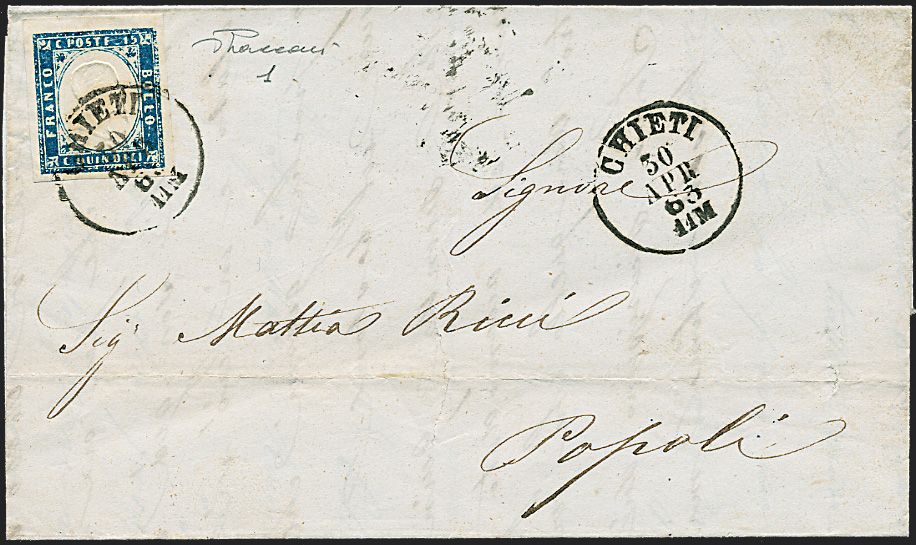 C POSTE 15
FRANCO
BOLLO
C QUINDICI
1
CHIETI
30
APR
63
11M
Signore
Sig Mattia Ricci
Popoli